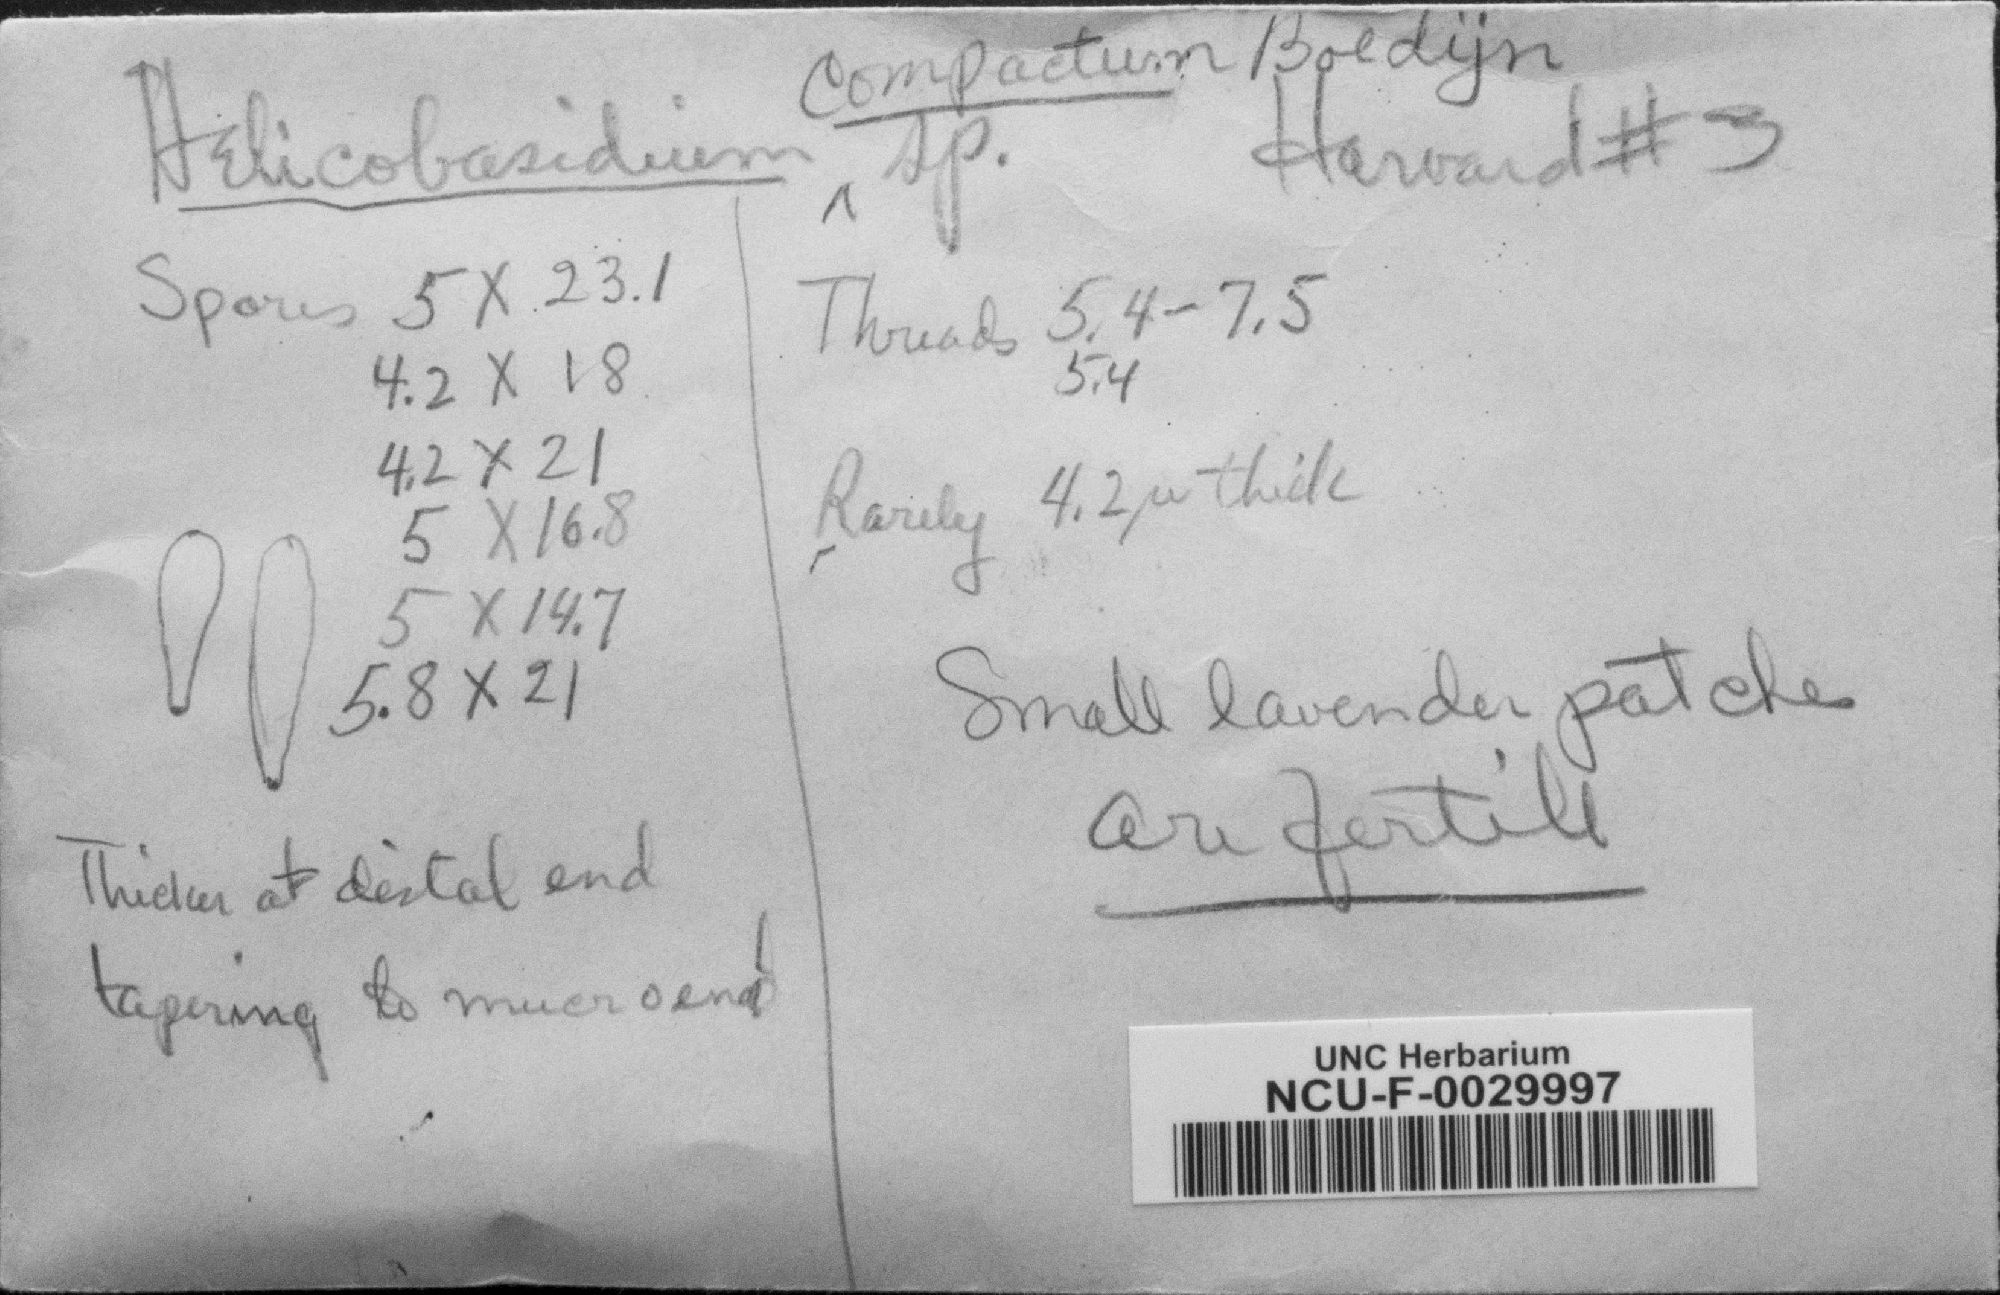 Compactum Boedijn
Helicobasidium ^ sp. Harvard # 3
Spores 5 X 23.1
4.2 X 18
4.2 X 21
5 X 16.8
5 X 14.7
5.8 X 21
Thicker at distal end
tapering to mucro end
Threads 5.4 - 7.5
5.4
Rarely 4.2 µ thick
Small lavender patches
are fertile
UNC Herbarium
NCU-F-0029997